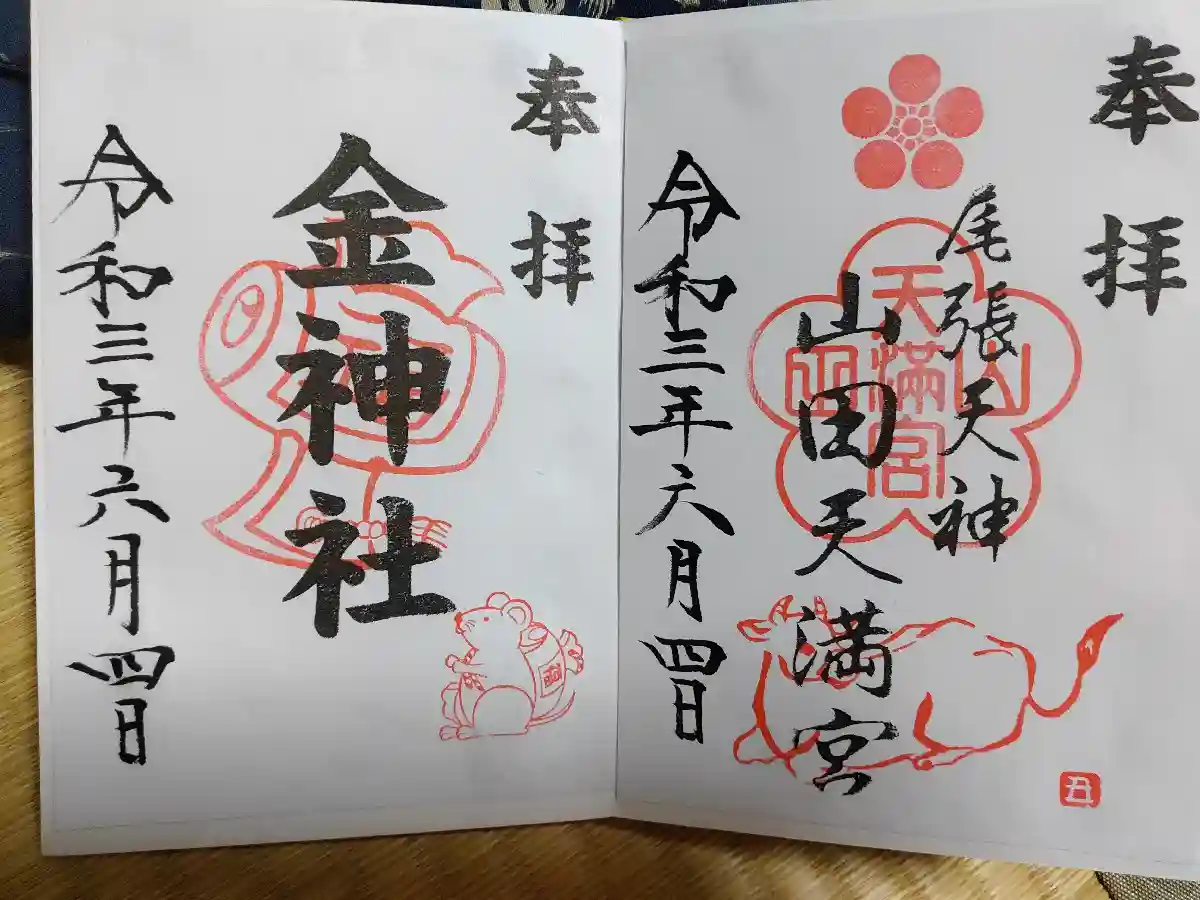 奉拝
尾張天神
山田天満宮
天満宮
山
田
令和三年六月四日
丑
奉拝
金神社
令和三年六月四日